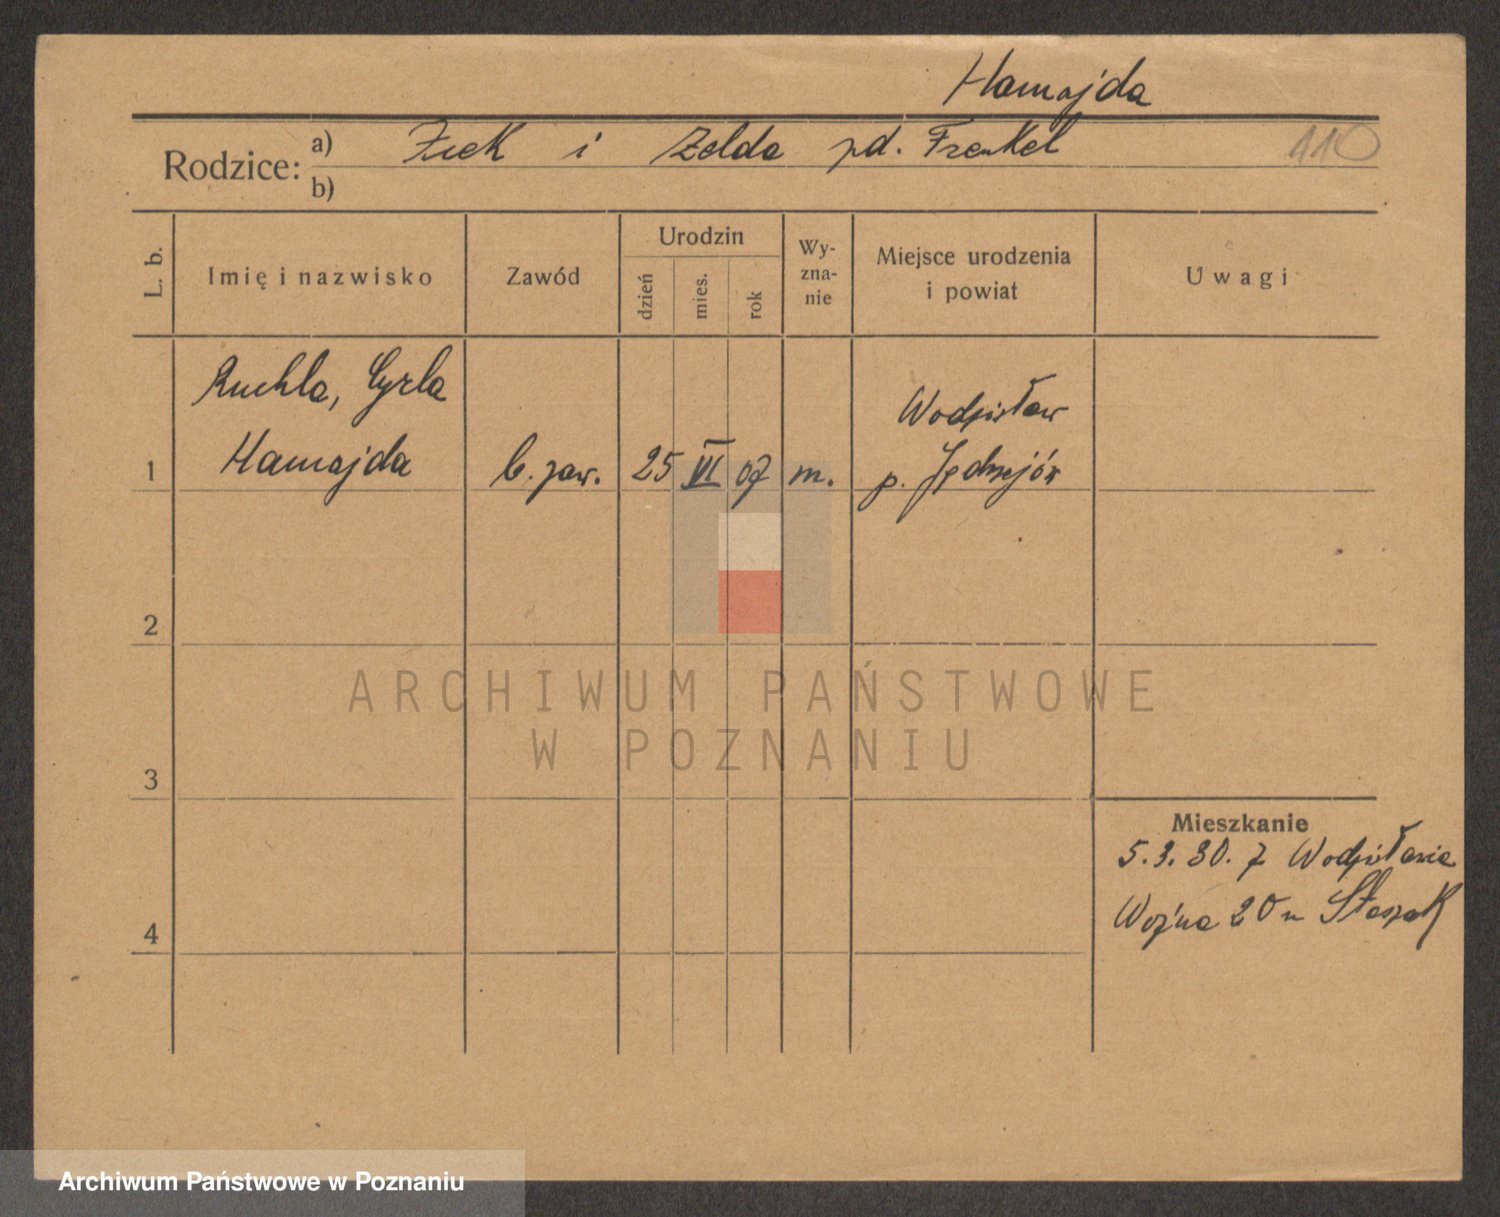 Hamajda
Rodzice: a) Icek i Zelda pd. Frenkel
110
b)
L. b.
Imię i nazwisko
Zawód
Urodzin
dzień
mies.
rok
Wy-
zna-
nie
Miejsce urodzenia
i powiat
Uwagi
Ruchla, Cyrla
Hamajda
1
b. zaw.
25 VI 07
m.
Wodzisław
p. Jędrzejów
2
ARCHIWUM PAŃSTWOWE
W POZNANIU
3
Mieszkanie
5.3.30. z Wodzisławia
Woźna 20 u Staszak
4
Archiwum Państwowe w Poznaniu